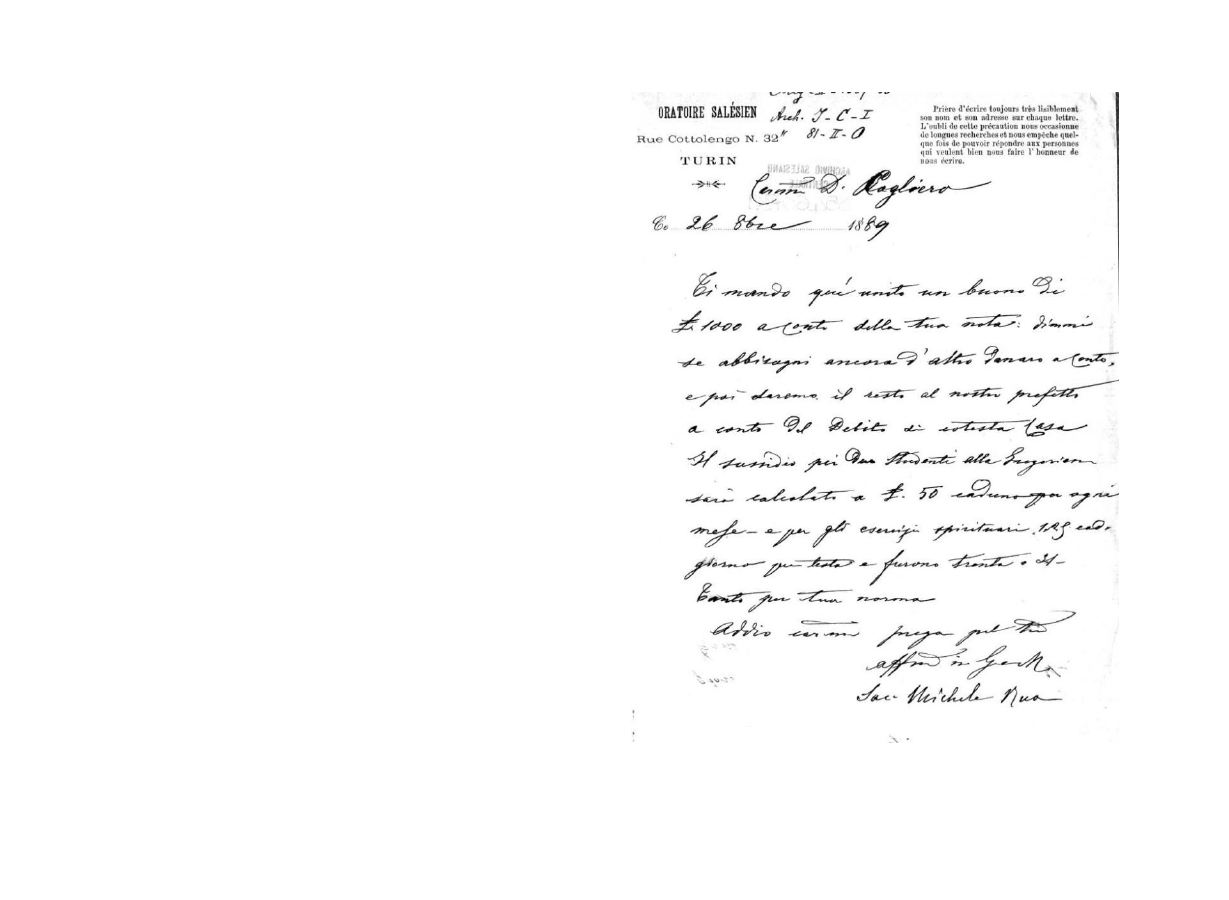 ORATOIRE SALÉSIEN
Rue Cottolengo N. 32
TURIN
Arch. I-C-I
81-II-0
Prière d'écrire toujours très lisiblement
son nom et son adresse sur chaque lettre.
L'oubli de cette précaution nous occasionne
de longues recherches et nous empêche quel-
que fois de pouvoir répondre aux personnes
qui veulent bien nous faire l'honneur de
nous écrire.
Carmo D. Cagliero
26 8bre 1889
Ti mando qui unito un buono di
£. 1000 a conto della tua nota: dimmi
se abbisogni ancora d'altro danaro a conto,
e poi daremo il resto al nostro prefetto
a conto del Debito di cotesta Casa
Il sussidio pei due studenti alla Gregoriana
sarà calcolato a £. 50 caduno per ogni
mese - e per gli esercizi spirituali 1.25 cad.
giorno per testa e furono trenta o 31-
Tanto per tua norma
Addio carmo prega pel tuo
affmo in G. e M.
Sac. Michele Rua